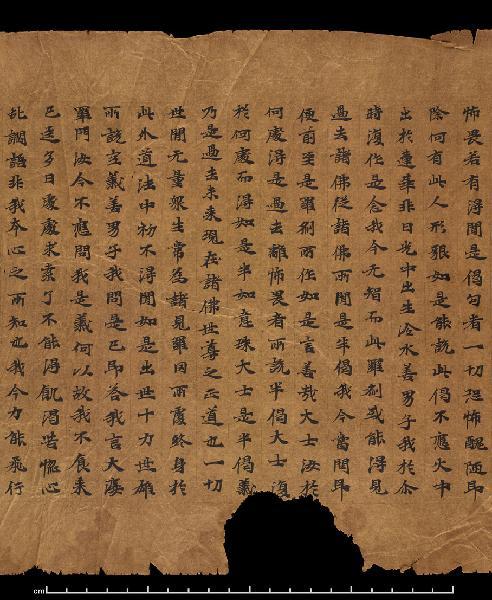 怖畏若有得聞是偈句者一切恐怖醜陋即
除何有此人形貌如是能說此偈不應火中
出於蓮華非日光中出生冷水善男子我於尒
時復作是念我今无智而此羅刹或能得見
過去諸佛從諸佛所聞是半偈我今當問即
便前至是羅刹所作如是言善哉大士汝於
何處得是過去離怖畏者所說半偈大士復
於何處而得如是半如意珠大士是半偈義
乃是過去未來現在諸佛世尊之正道也一切
世間无量衆生常為諸見羅罔所覆終身於
此外道法中初不得聞如是出世十力世雄
所說空義善男子我問是已即答我言大婆
羅門汝今不應問我是義何以故我不食來
已逕多日處處求索了不能得飢渴苦惱心
乱讇語非我本心之所知也我今力能飛行